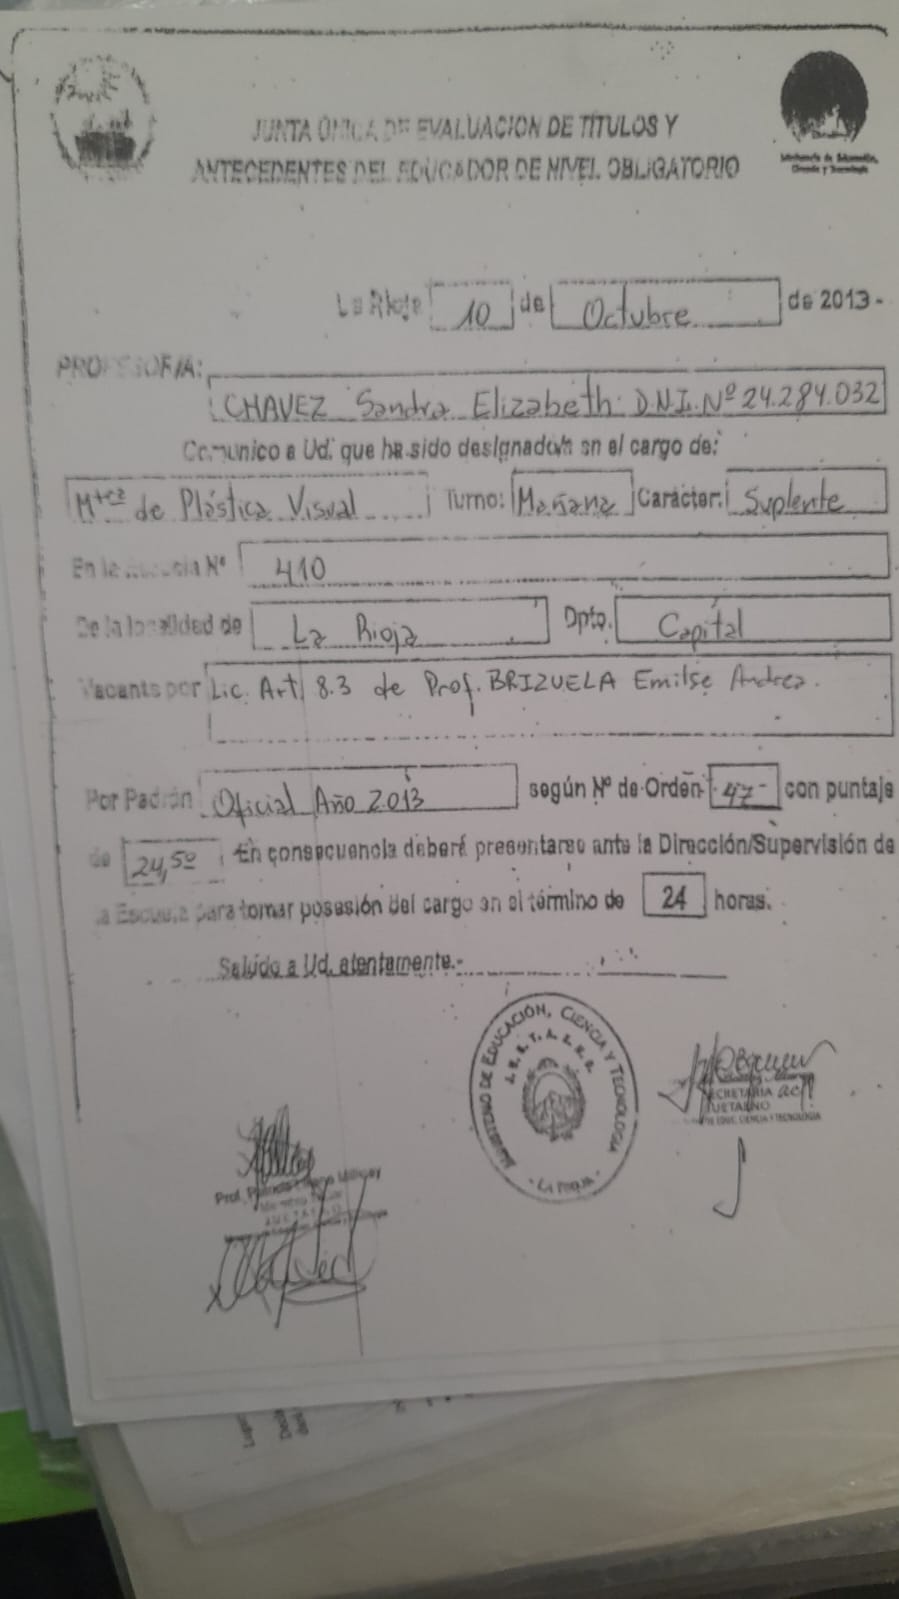 JUNTA ÚNICA DE EVALUACION DE TÍTULOS Y
ANTECEDENTES DEL EDUCADOR DE NIVEL OBLIGATORIO
Ministerio de Educación,
Ciencia y Tecnología
La Rioja 10 de Octubre de 2013-
PROFESOR/A:
CHAVEZ Sandra Elizabeth D.N.I. Nº 24.284.032
Comunico a Ud. que ha sido designado/a en el cargo de:
Mtra de Plástica Visual Turno: Mañana Carácter: Suplente
En la escuela Nº 410
De la localidad de La Rioja Dpto. Capital
Vacante por Lic. Art 8.3 de Prof. BRIZUELA Emilse Andrea.
Por Padrón Oficial Año 2013 según Nº de Orden 47- con puntaje
de 24,50 En consecuencia deberá presentarse ante la Dirección/Supervisión de
la Escuela para tomar posesión del cargo en el término de 24 horas.
Saludo a Ud. atentamente.-
MINISTERIO DE EDUCACIÓN, CIENCIA Y TECNOLOGIA
- LA RIOJA -
SECRETARIA
JUETAENO
DE EDUC. CIENCIA Y TECNOLOGIA
Prof.